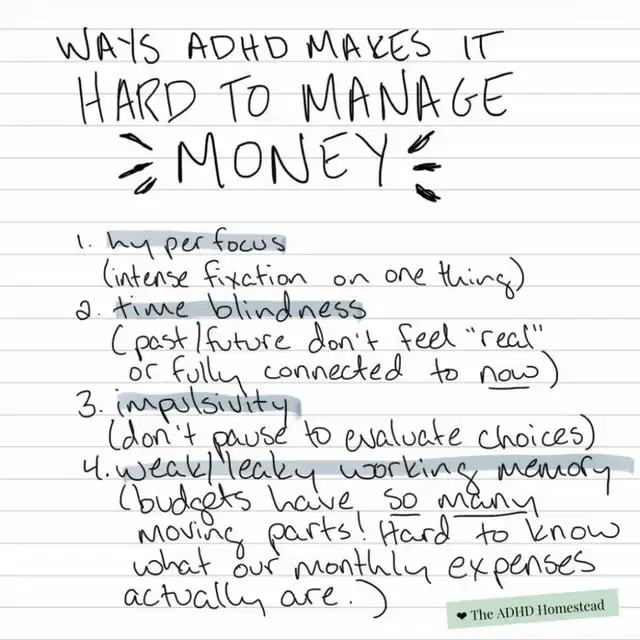 WAYS ADHD MAKES IT
HARD TO MANAGE
MONEY
1. hyperfocus
(intense fixation on one thing)
2. time blindness
(past/future don't feel "real"
or fully connected to now)
3. impulsivity
(don't pause to evaluate choices)
4. weak/leaky working memory
(budgets have so many
moving parts! Hard to know
what our monthly expenses
actually are.)
❤ The ADHD Homestead